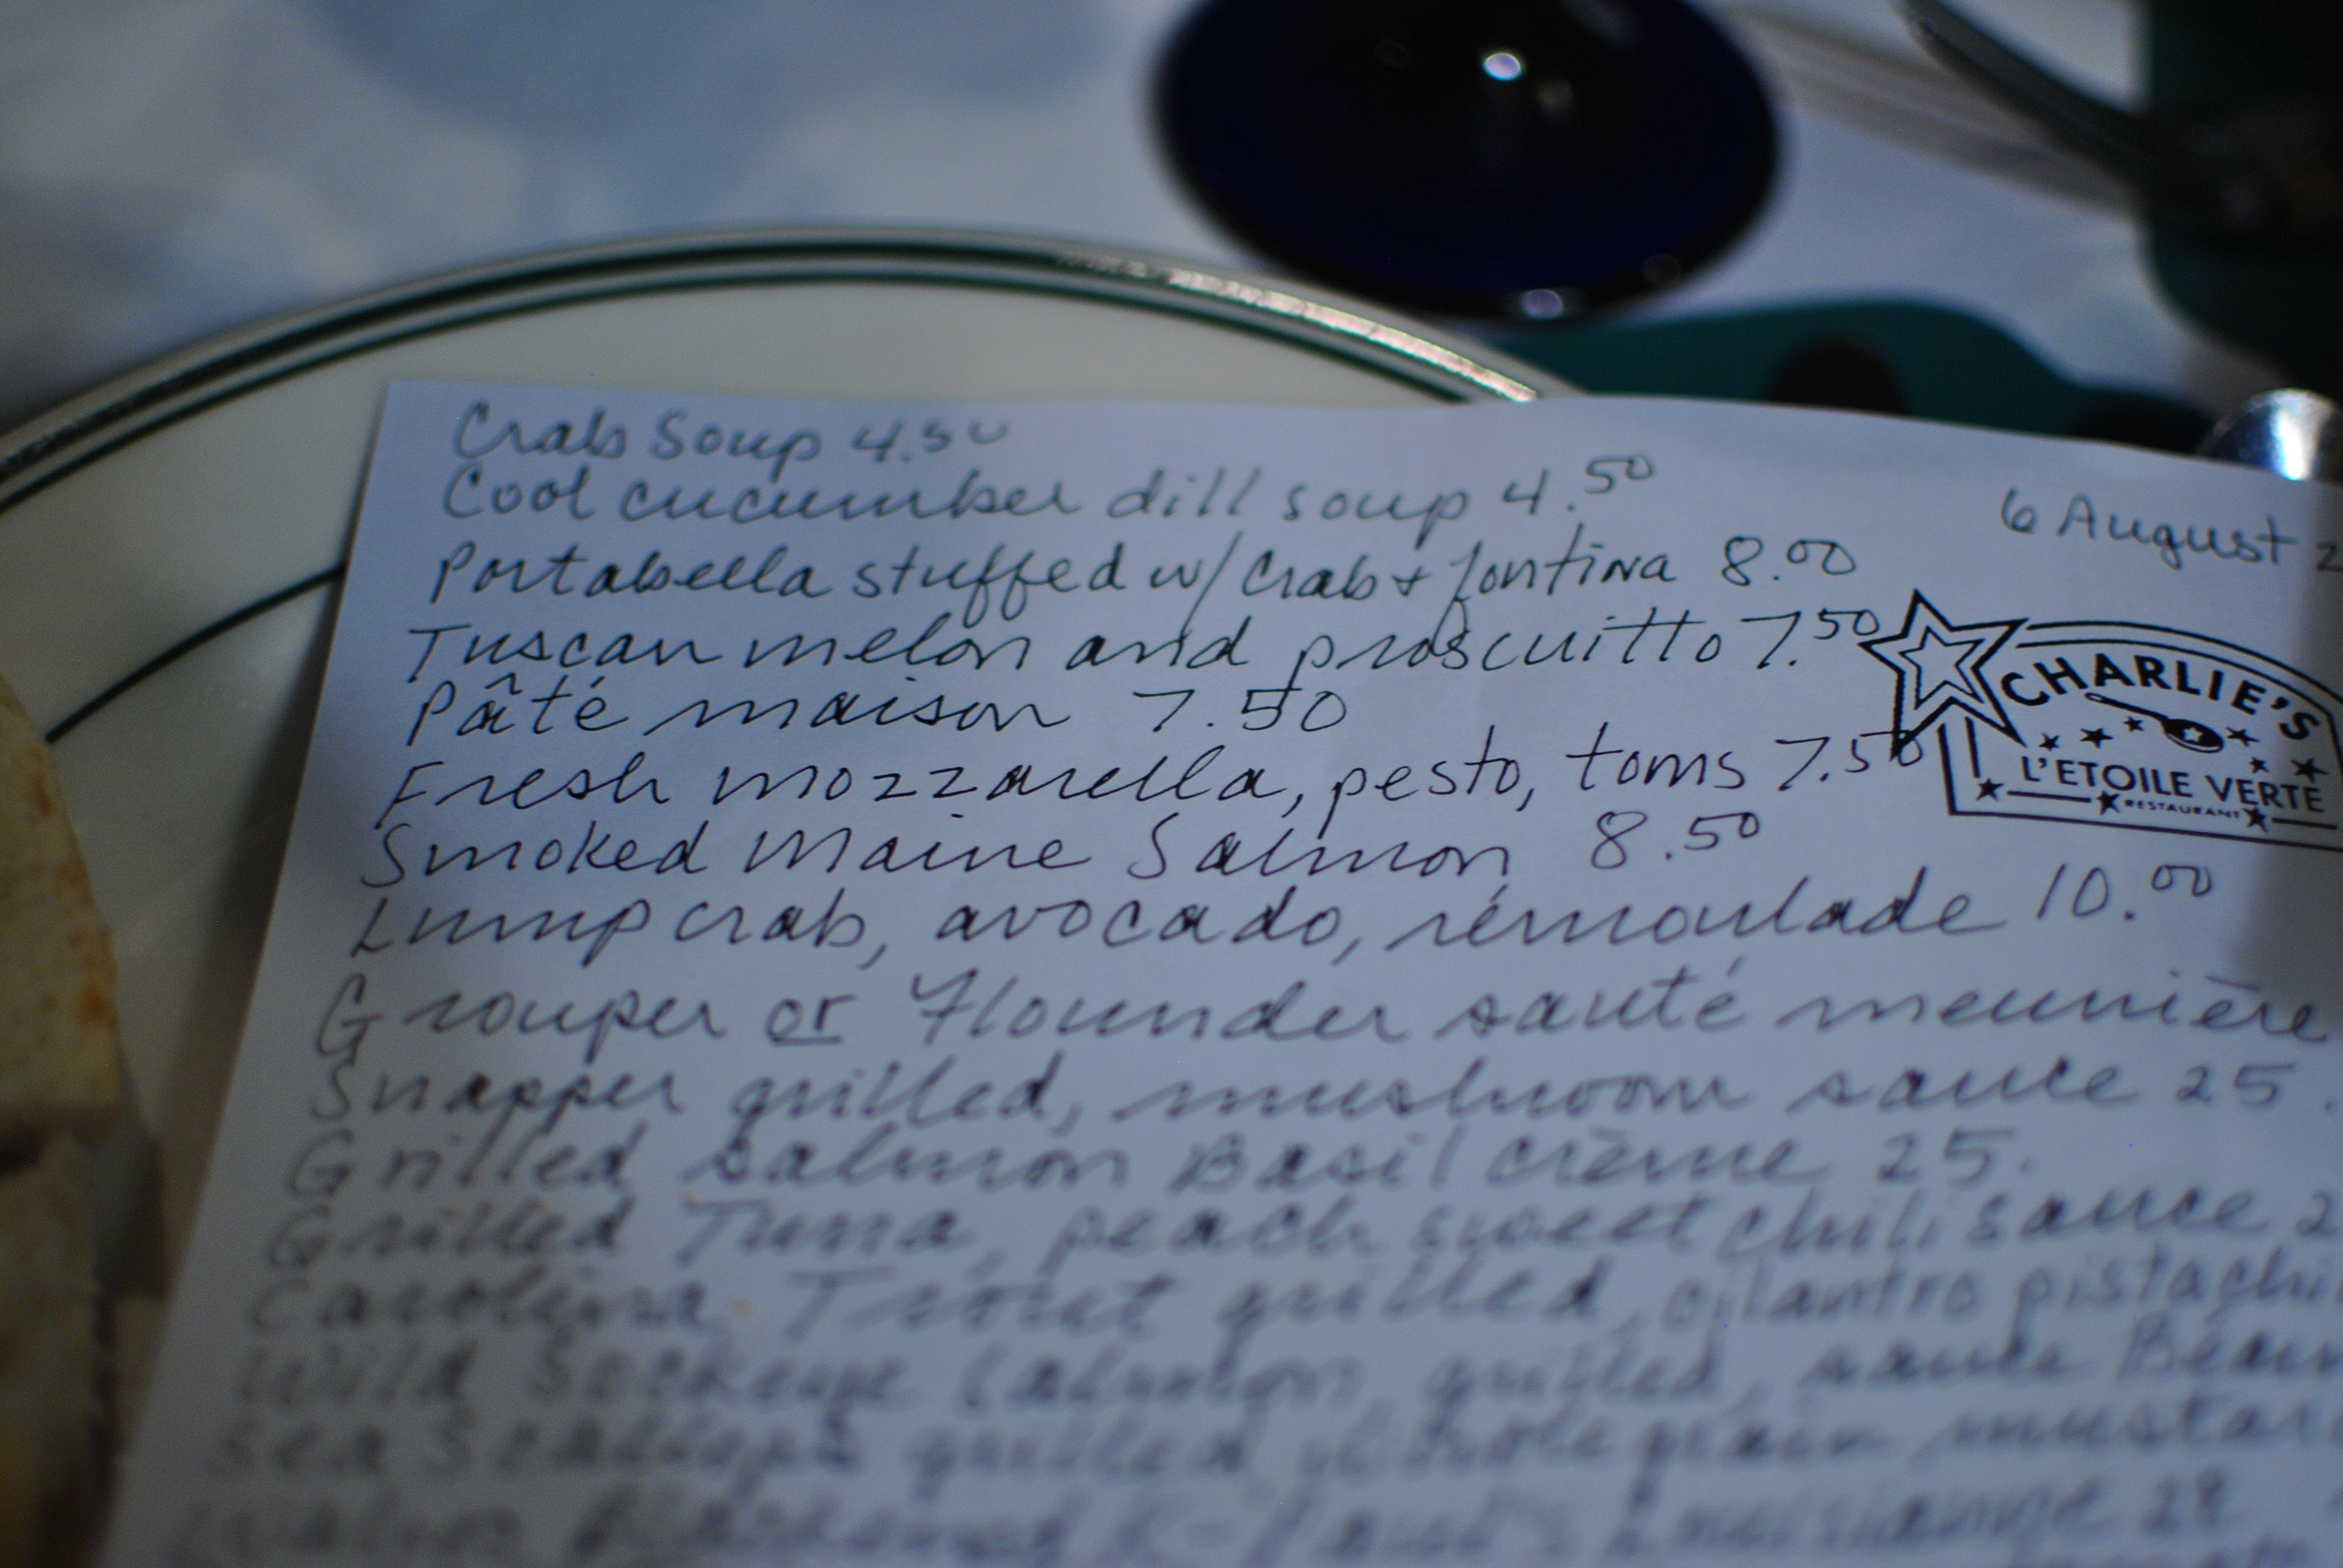 Crab Soup 4.50
Cool cucumber dill soup 4.50
6 August 2
Portabella stuffed w/ Crab + fontina 8.00
Tuscan melon and proscuitto 7.50
Pâté maison 7.50
Fresh mozzarella, pesto, toms 7.50
CHARLIE'S
L'ETOILE VERTE
RESTAURANT
Smoked Maine Salmon 8.50
Lump crab, avocado, rémoulade 10.00
Grouper or Flounder sauté meunière
Snapper grilled, mushroom sauce 25.
Grilled salmon Basil crème 25.
Grilled Tuna, peach sweet chili sauce 2
Carolina Trout grilled, cilantro pistachi
Wild Sockeye Salmon, grilled, sauce Béarn
Sea Scallops grilled, whole grain mustar
28